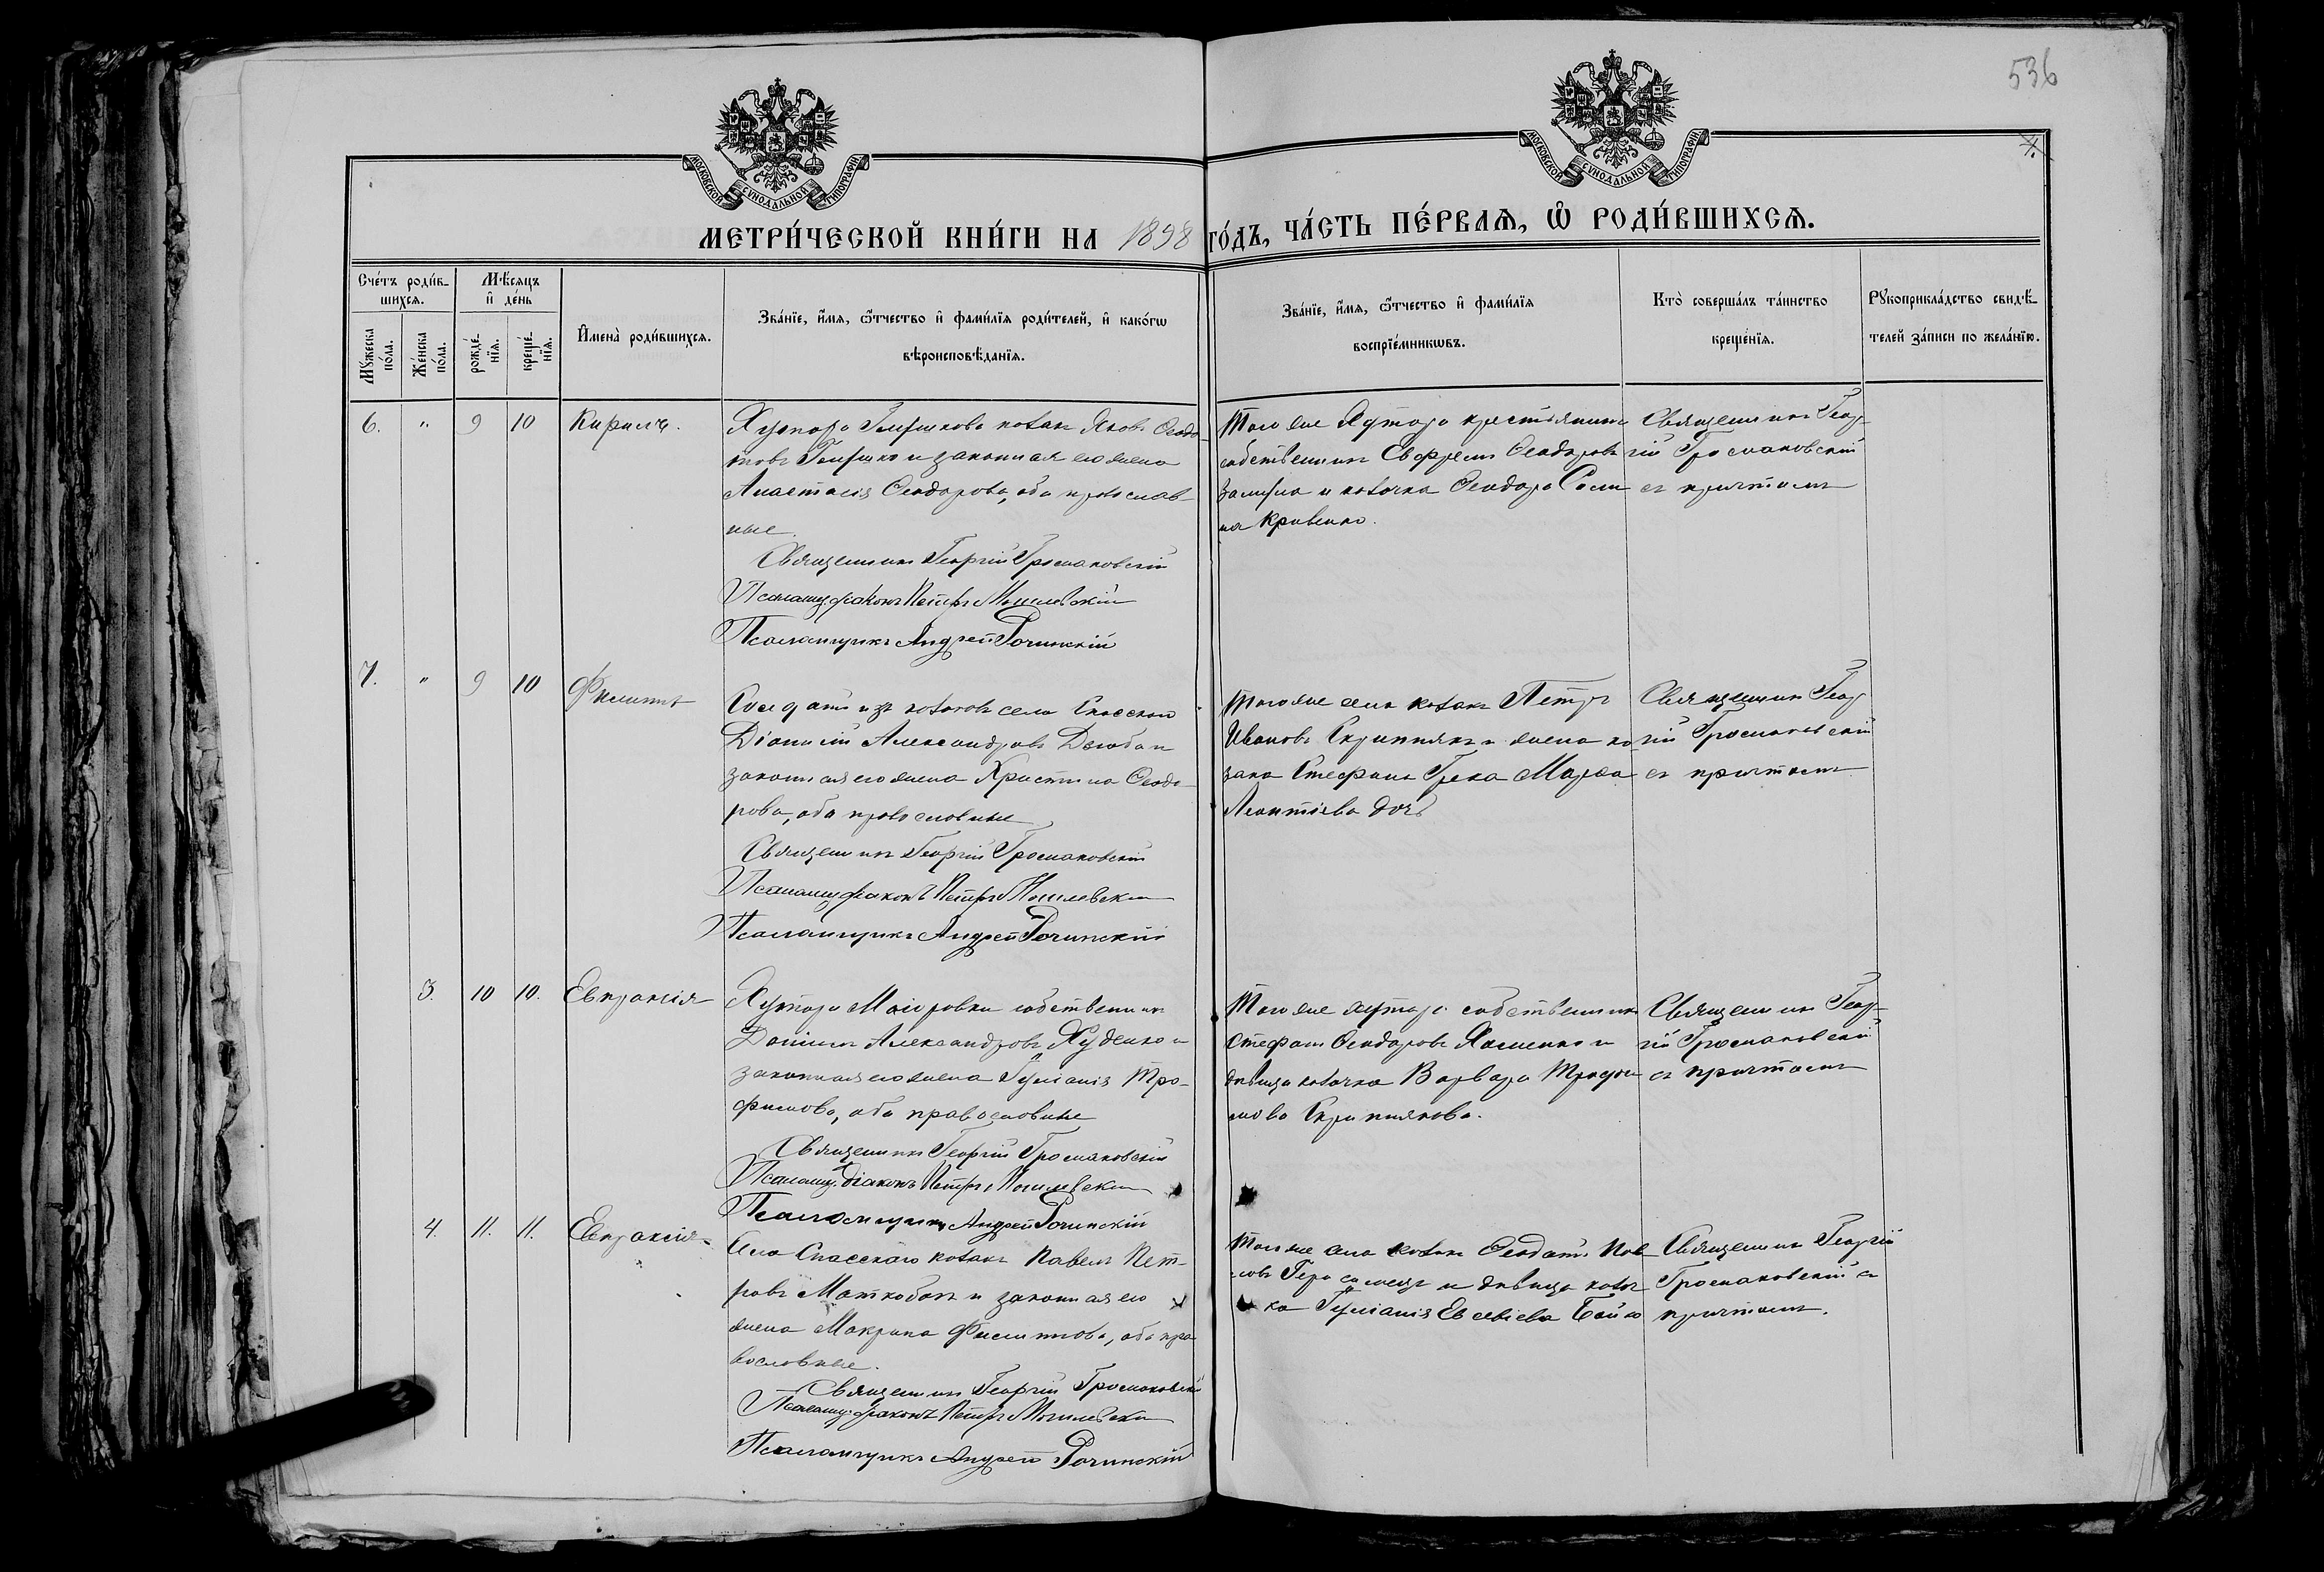 536
4.
МОСКОВСКОЙ СѴНОДАЛЬНОЙ ТИПОГРАФІИ
МОСКОВСКОЙ СѴНОДАЛЬНОЙ ТИПОГРАФІИ
МЕТРИ́ЧЕСКОЙ КНИ́ГИ НА 1898 ГО́ДЪ, ЧА́СТЬ ПЕ́РВАѦ, Ѡ҆ РОДИ́ВШИХСѦ.
Сче́тъ роди́в-
шихсѧ.
Мꙋ́жеска
по́ла.
Же́нска
по́ла.
Мѣ́сѧцъ
и҆ де́нь
рожде́-
нїѧ.
креще́-
нїѧ.
И҆мена̀ роди́вшихсѧ.
Зва́нїе, и҆́мѧ, ѻ҆́тчество и҆ фами́лїѧ роди́телей, и҆ како́гѡ
вѣроисповѣ́данїѧ.
Зва́нїе, и҆́мѧ, ѻ҆́тчество и҆ фами́лїѧ
воспрїе́мникѡвъ.
Кто̀ соверша́лъ та́инство
креще́нїѧ.
Рꙋкоприкла́дство свидѣ́-
телей за́писи по жела́нїю.
6. " 9 10 Кирилъ.
Хутора козакъ Яковъ Ѳеодо-
товъ и законная его жена
Анастасія Ѳеодорова, оба православ-
ные.
Священникъ Георгій Громаковскій
Псаломщ. діаконъ Петръ Могилевскій
Псаломщикъ Андрей Рочинскій
Того же Хутора крестьянинъ
собственникъ Ефремъ Ѳеодоровъ
и козачка Ѳеодора
на Кривенко.
Священникъ Геор-
гій Громаковскій
съ причтомъ
7. " 9 10 Филиппъ
Солдатъ изъ козаковъ села Спасскаго
Діонисій Александровъ и
законная его жена Христина Ѳеодо-
рова, оба православные
Священникъ Георгій Громаковскій
Псаломщ. діаконъ Петръ Могилевскій
Псаломщикъ Андрей Рочинскій
Того же села козакъ Петръ
Ивановъ Скрипнякъ и жена ко
зака Стефана Грека Марѳа
Леонтіева дочь
Священникъ Геор
гій Громаковскій
съ причтомъ
3. 10 10. Евпраксія
Хутора Маіоровки собственникъ
Даніилъ Александровъ Худенко и
законная его жена Іуліанія Тро-
фимова, оба православные
Священникъ Георгій Громаковскій
Псаломщ. діаконъ Петръ Могилевскій
Псаломщикъ Андрей Рочинскій
Того же хутора собственникъ
Стефанъ Ѳеодоровъ и
дѣвица козачка Варвара Трифо
нова Скрипнякова.
Священникъ Геор-
гій Громаковскій
съ причтомъ
4. 11. 11. Евпраксія
Села Спасскаго козакъ Павелъ Пет-
ровъ и законная его
жена Макрина Филиппова, оба пра
вославные.
Священникъ Георгій Громаковскій
Псаломщ. діаконъ Петръ Могилевскій
Псаломщикъ Андрей Рочинскій
Того же села козакъ Ѳеодотъ Пав
ловъ Герасименко и дѣвица козач
ка Іуліанія Евсевіева Бойко
Священникъ Георгій
Громаковскій съ
причтомъ.